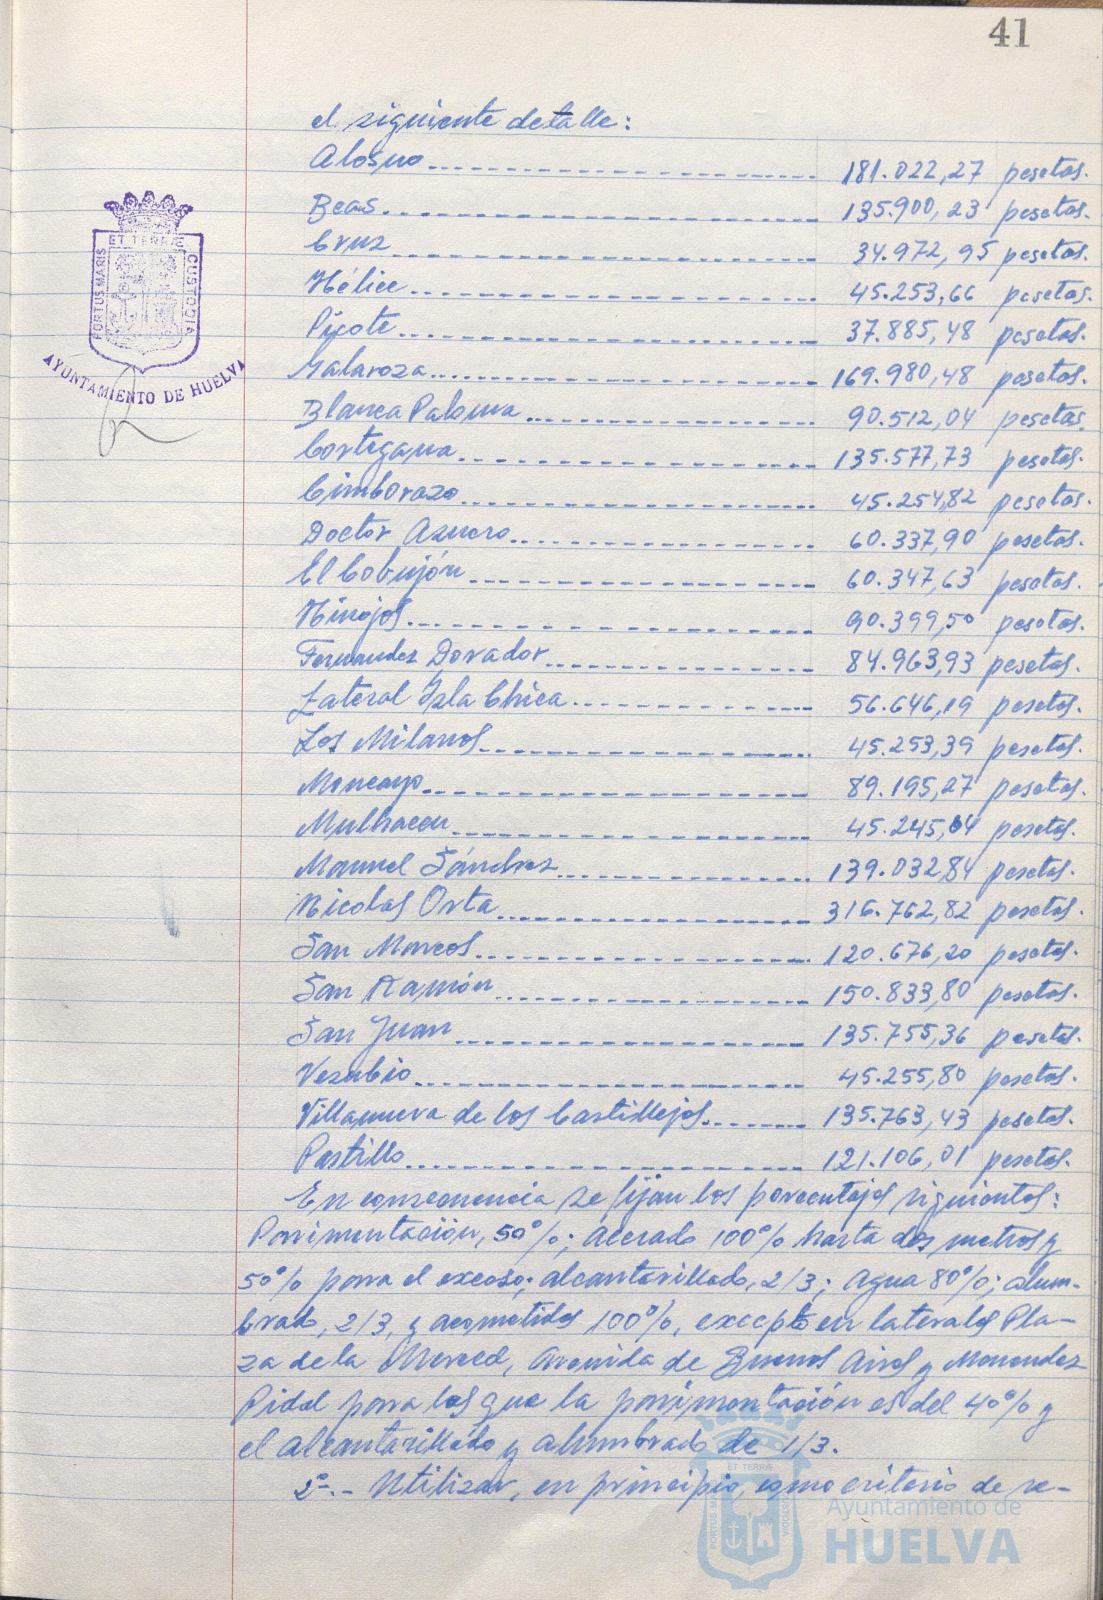 41
el siguiente detalle:
Alosno 181.022,27 pesetas.
Beas 135.900,23 pesetas.
Cruz 34.972,95 pesetas.
Hélice 45.253,66 pesetas.
Picote 37.885,48 pesetas.
Galaroza 169.980,48 pesetas.
Blanca Paloma 90.512,04 pesetas.
Cortegana 135.577,73 pesetas.
Cimborazo 45.254,82 pesetas.
Doctor Azuero 60.337,90 pesetas.
El Cobujón 60.347,63 pesetas.
Hinojos 90.399,50 pesetas.
Fernandez Dorador 84.963,93 pesetas.
Lateral Isla Chica 56.646,19 pesetas.
Los Milanos 45.253,39 pesetas.
Moncayo 89.195,27 pesetas.
Mulhacen 45.245,64 pesetas.
Manuel Sánchez 139.032,84 pesetas.
Nicolas Orta 316.762,82 pesetas.
San Marcos 120.676,20 pesetas.
San Ramón 150.833,80 pesetas.
San Juan 135.755,36 pesetas.
Vezubio 45.255,80 pesetas.
Villanueva de los Castillejos 135.763,43 pesetas.
Pastillo 121.106,01 pesetas.
En consecuencia se fijan los porcentajes siguientes:
Pavimentación, 50%; acerado 100% hasta dos metros y
50% para el exceso; alcantarillado, 2/3; agua 80%; alum-
brado, 2/3, y acometidas 100%, excepto en laterales Pla-
za de la Merced, Avenida de Buenos Aires y Menendez
Pidal para los que la pavimentación es del 40% y
el alcantarillado y alumbrado de 1/3.
2º.- Utilizar, en principio, como criterio de re-
PORTUS MARIS ET TERRÆ CUSTODIA
AYUNTAMIENTO DE HUELVA
PORTUS MARIS ET TERRÆ CUSTODIA
Ayuntamiento de
HUELVA